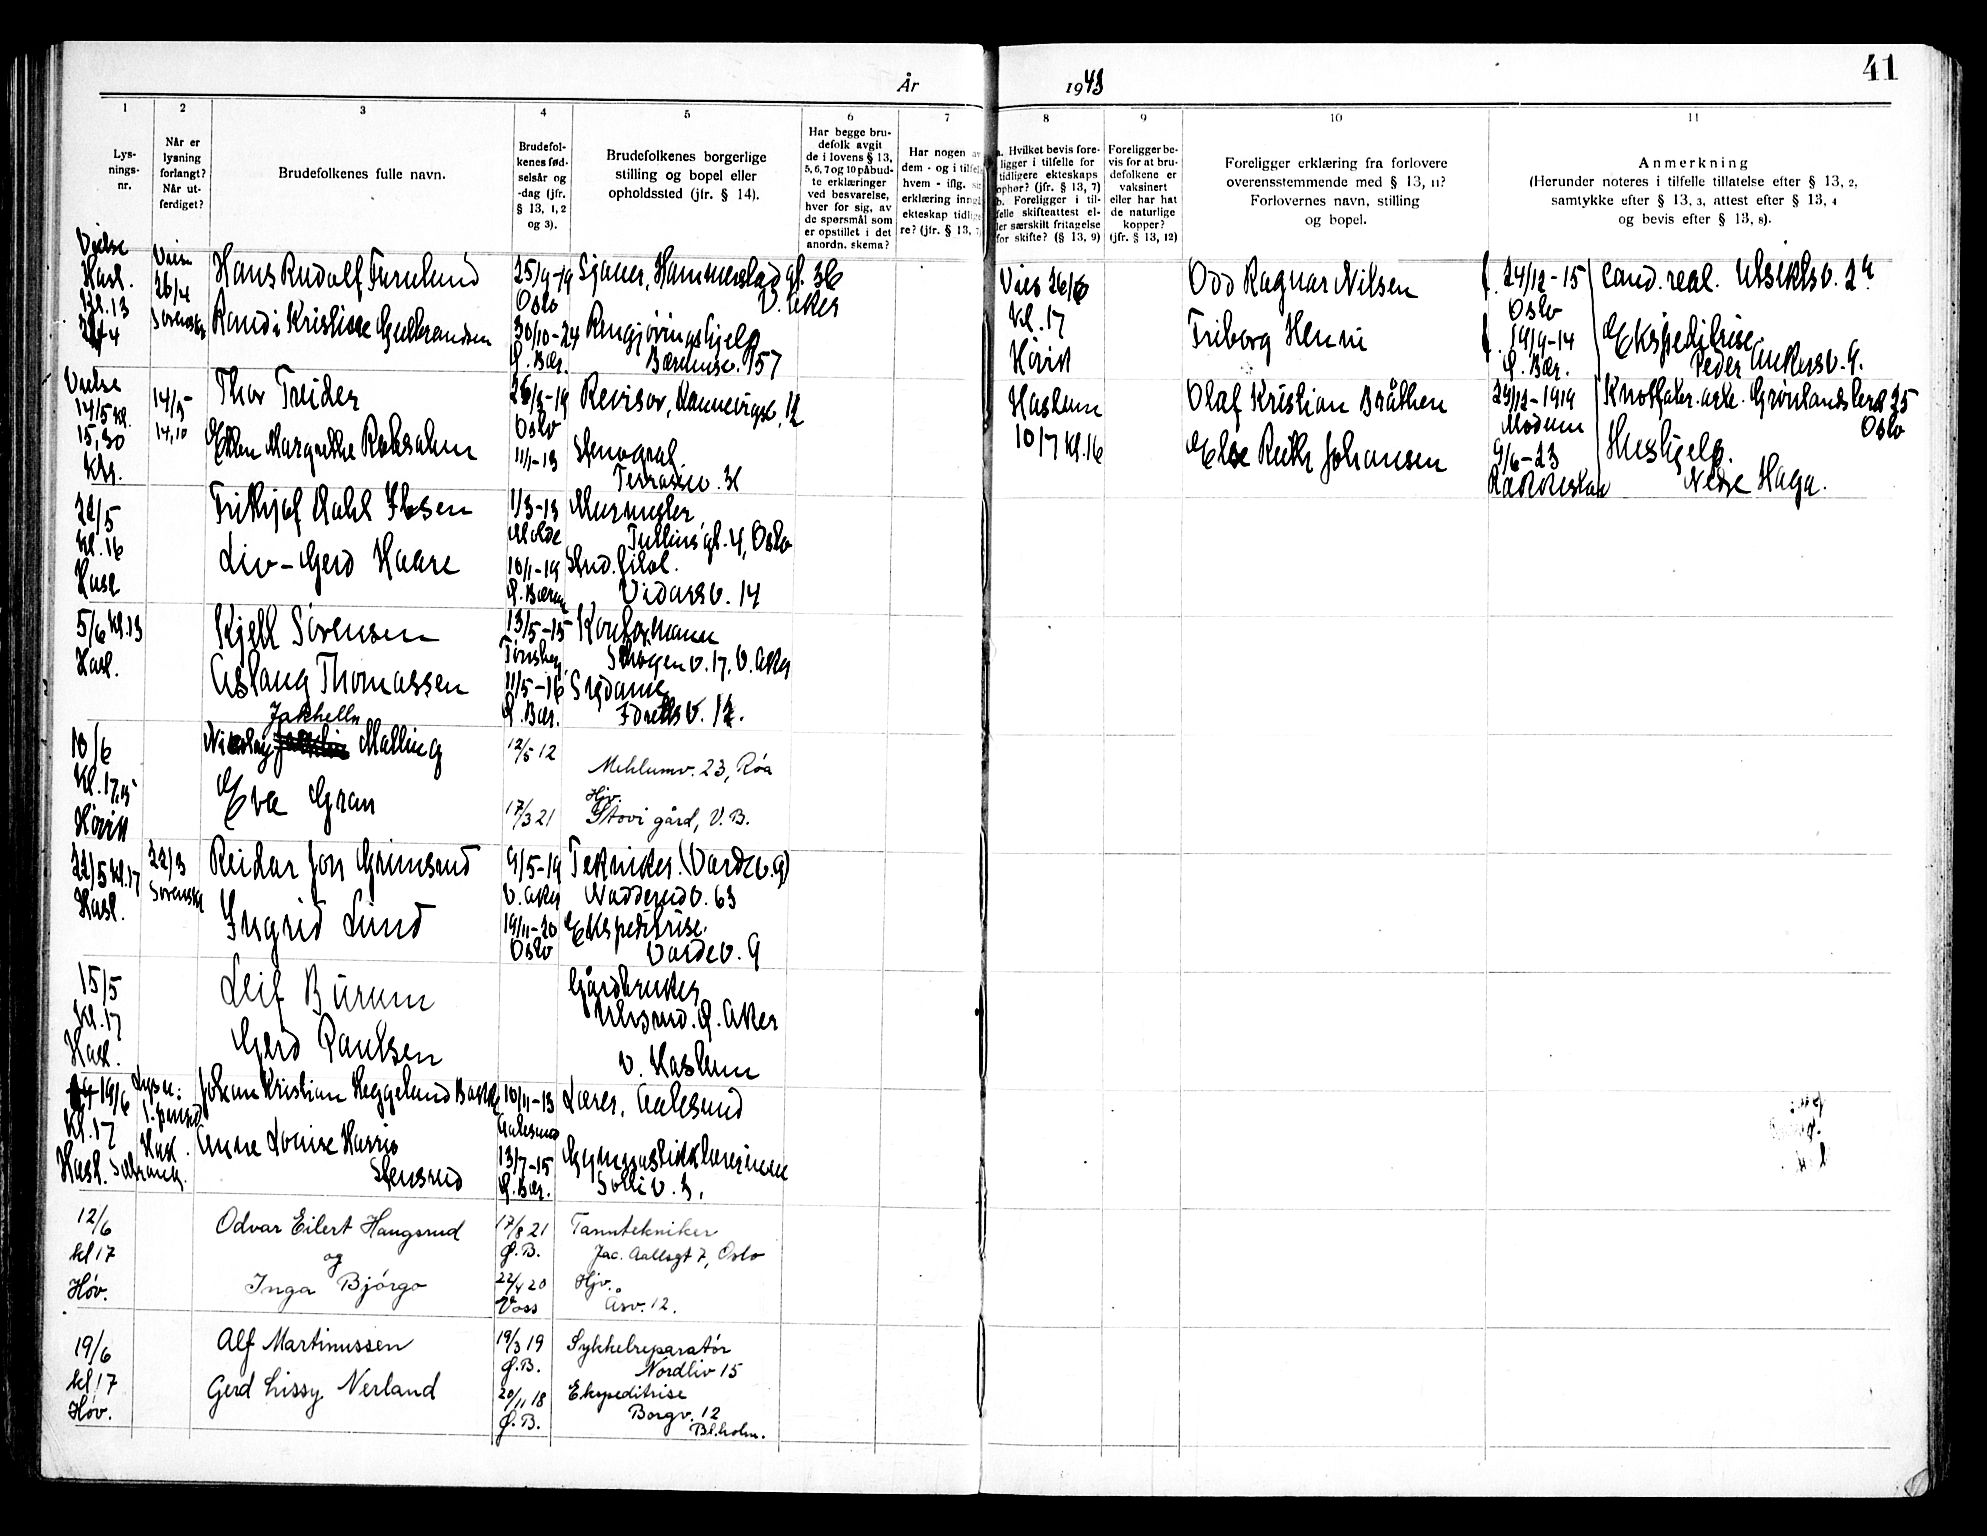 41
År 1943
1 2 3 4 5 6 7 8 9 10 11
Lys-
nings-
nr.
Når er
lysning
forlangt?
Når ut-
ferdiget?
Brudefolkenes fulle navn.
Brudefol-
kenes fød-
selsår og
-dag (jfr.
§ 13, 1, 2
og 3).
Brudefolkenes borgerlige
stilling og bopel eller
opholdssted (jfr. § 14).
Har begge bru-
defolk avgit
de i lovens § 13,
5, 6, 7 og 10 påbud-
te erklæringer
ved besvarelse,
hver for sig, av
de spørsmål som
er opstillet i det
anordn. skema?
Har nogen av
dem - og i tilfelle
hvem - iflg.
erklæring inng
ekteskap tidlig
re? (jfr. § 13, 7)
a. Hvilket bevis fore-
ligger i tilfelle for
tidligere ekteskaps
ophør? (jfr. § 13, 7)
b. Foreligger i til-
felle skifteattest el-
ler særskilt fritagelse
for skifte? (§ 13, 9)
Foreligger be-
vis for at bru-
defolkene er
vaksinert
eller har hat
de naturlige
kopper?
(jfr. § 13, 12)
Foreligger erklæring fra forlovere
overensstemmende med § 13, 11?
Forlovernes navn, stilling
og bopel.
Anmerkning
(Herunder noteres i tilfelle tillatelse efter § 13, 2,
samtykke efter § 13, 3, attest efter § 13, 4
og bevis efter § 13, 8).
Vielse
Hasl.
Kl. 13
26/4
Hans Rudolf Furulund
25/9-19
Oslo
Sjauer, Hammerstad gt. 36
V. Aker
Randi Kristine Gulbrandsen
30/10-24
Ø. Bær.
Rengjøringshjelp
Bærumsv. 157
Vies 26/6
Kl. 17
Høvik
Odd Ragnar Nilsen
f. 24/12-15
Oslo
Cand. real. Utsiktsv. 2a
Friborg Henni
f. 19/9-14
Ø. Bær.
Ekspeditrise
Peder Ankersv. 9.
Vielse
14/5 kl.
15,30
14/5
14,10
Thor Treider
26/3-19
Oslo
Revisor, Kannevigst. 12
Ellen Margrethe Robsahm
11/1-13
Stenograf.
Terrassev. 31
Haslum
10/7 Kl. 16
Olaf Kristian Bråthen
29/12-1919
Modum
Oslo
Else Ruth Johansen
9/6-23
Rakkestad
Hushjelp.
Nedre Haga.
22/5
Kl. 16
Hasl
Frithjof Dahl Ibsen
1/3-13
Molde
Murmester
Tullinsgt. 4, Oslo
Liv-Gerd Haare
10/1-19
Ø. Bærum
Stud. filol.
Vidarsv. 14
5/6 Kl. 13
Hasl.
Kjell Sørensen
13/5-15
Tønsberg
Kontormann
Skogen v. 17, V. Aker
Aslaug Thomassen
11/5-16
Ø. Bær.
Sydame
Idretts v. 12.
10/6
Kl. 17,15
Høvik
Jakhelln
Nicolay Malling
12/5 12
Mehlumv. 23, Røa
Eva Gran
17/3 21
Hjv.
Stovi gård, V. B.
22/5 Kl. 17
Hasl.
22/3
Reidar Jon Grimsrud
9/5-19
V. Aker
Tekniker. (Vardev. 9)
Nadderudv. 63
Ingrid Lund
19/11-20
Oslo
Ekspeditrise.
Vardev. 9
15/5
Kl. 17
Hasl.
Leif Burum
Gårdbruker
Ø. Aker
Gerd Paulsen
v. Haslum
19/6
Kl. 17
Hasl.
Lysn:
Johan Kristian Heggelund Bakke
10/11-13
Aalesund
Lærer, Aalesund
Anne Louise Harris
Stensrud
13/7-15
Ø. Bær.
Gymnastikklærerinne
Solli v. 3.
12/6
kl 17
Høv.
Odvar Eilert Haugsrud
og
Inga Bjørgo
17/8 21
Ø. B.
22/4 20
Voss
Tanntekniker
Jac. Aallsgt 7, Oslo
Hjv.
Åsv. 12.
19/6
kl 17
Høv.
Alf Martinussen
Gerd Lissy Nerland
19/3 19
Ø. B.
20/11 18
Ø. B.
Sykkelreparatør
Nordliv 15
Ekspeditrise
Borgv. 12
Bl.holm.